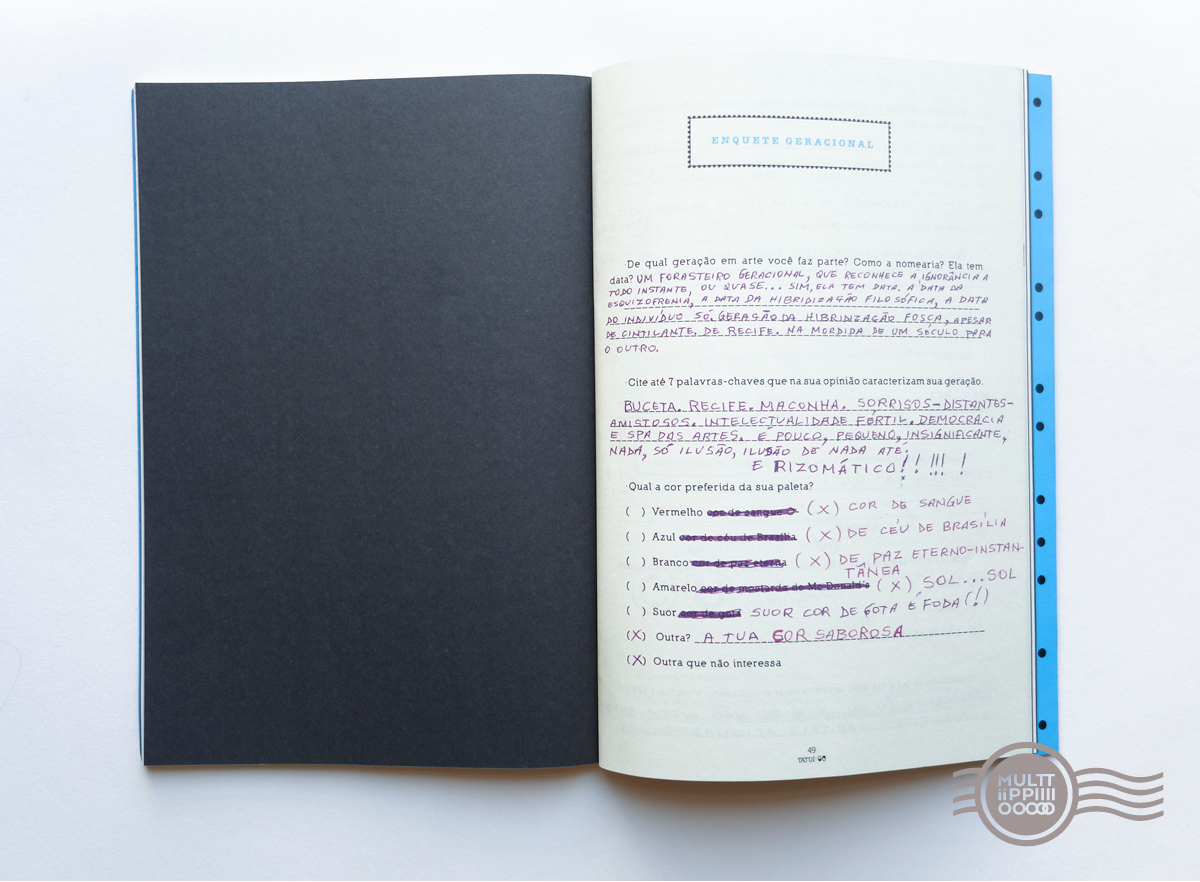 ENQUETE GERACIONAL
·De qual geração em arte você faz parte? Como a nomearia? Ela tem
data? UM FORASTEIRO GERACIONAL, QUE RECONHECE A IGNORÂNCIA A
TODO INSTANTE, OU QUASE... SIM, ELA TEM DATA. A DATA DA
ESQUIZOFRENIA, A DATA DA HIBRIDIZAÇÃO FILOSÓFICA, A DATA
DO INDIVÍDUO SÓ. GERAÇÃO DA HIBRINZAÇÃO FOSCA, APESAR
DE CINTILANTE. DE RECIFE. NA MORDIDA DE UM SÉCULO PARA
O OUTRO.
·Cite até 7 palavras-chaves que na sua opinião caracterizam sua geração.
BUCETA. RECIFE. MACONHA. SORRISOS-DISTANTES-
AMISTOSOS. INTELECTUALIDADE FÉRTIL. DEMOCRACIA
E SPA DAS ARTES. É POUCO, PEQUENO, INSIGNIFICANTE,
NADA, SÓ ILUSÃO, ILUSÃO DE NADA ATÉ.
E RIZOMÁTICO!!!!! !
·Qual a cor preferida da sua paleta?
( ) Vermelho cor de sangue O (X) COR DE SANGUE
( ) Azul cor de céu de Brasília (X) DE CÉU DE BRASÍLIA
( ) Branco cor de paz eterna (X) DE PAZ ETERNO-INSTAN-
TÂNEA
( ) Amarelo cor de mostarda do Mc Donald's (X) SOL...SOL
( ) Suor cor de gota SUOR COR DE GOTA É FODA (!)
(X) Outra? A TUA COR SABOROSA
(X) Outra que não interessa
49
TATUÍ·
MULTT
iiPPIIII
OOOOO